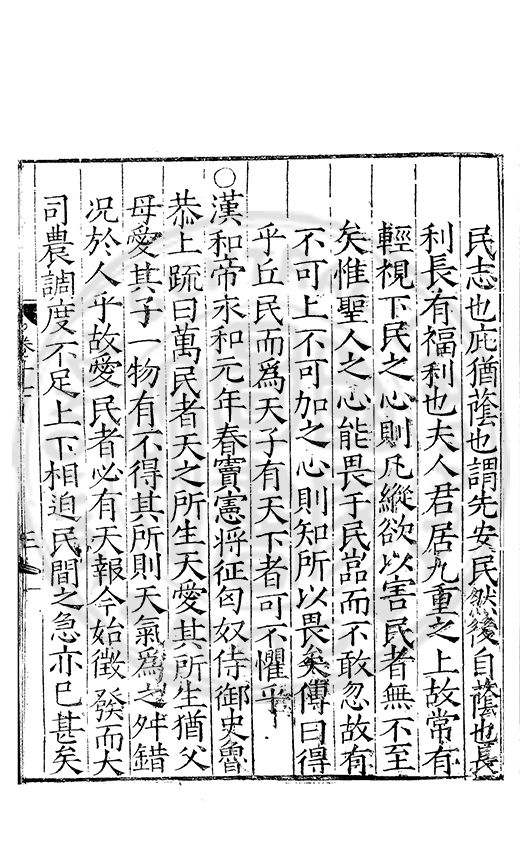 民志也庇猶蔭也謂先安民然後自蔭也長
利長有福利也夫人君居九重之上故常有
輕視下民之心則凡縱欲以害民者無不至
矣惟聖人之心能畏于民嵓而不敢忽故有
不可上不可加之心則知所以畏矣傳曰得
乎丘民而爲天子有天下者可不懼乎
○
漢和帝永和元年春竇憲將征匈奴侍御史魯
恭上䟽曰萬民者天之所生天愛其所生猶父
母愛其子一物有不得其所則天氣爲之舛錯
况於人乎故愛民者必有天報今始徵發而大
司農調度不足上下相迫民間之急亦已甚矣
卷十一
三